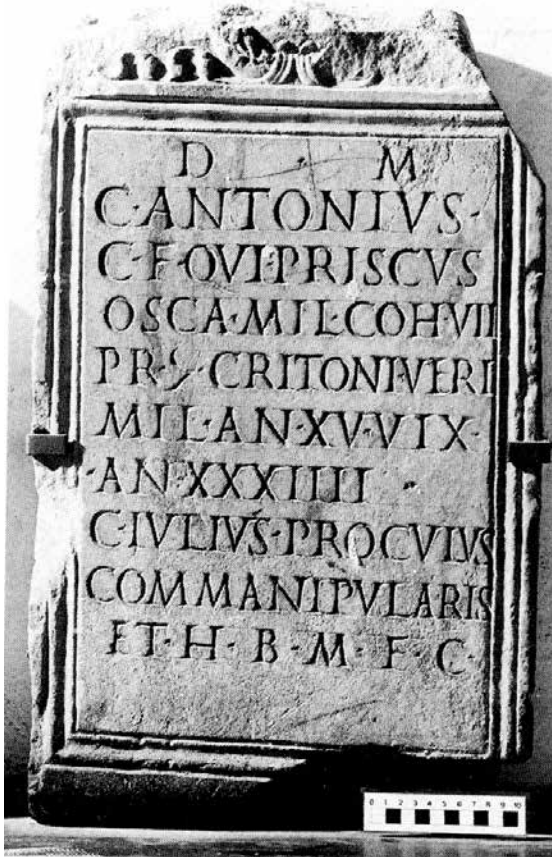 D M
C·ANTONIVS·
C·F·QVI·PRISCVS
OSCA·MIL·COH·VII
PR· CRITONI·VERI
MILAN·XV·VIX·
·AN·XXXIIII
C·IVLIVS·PROCVIVS
COMMANIPVLARIS
ET·H·B·M·F·C·
0 1 2 3 4 5 6 7 8 9 10